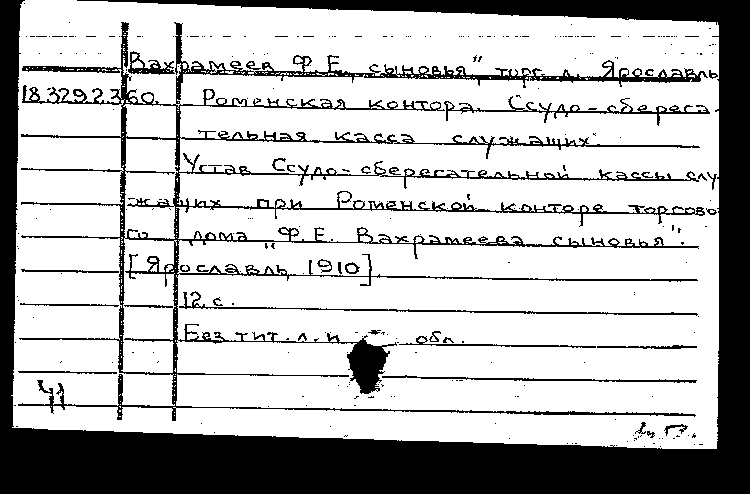 Вахрамеев, Ф. Е. сыновья", торг. д. Ярославль
18.329.2.360. Роменская контора. Ссудо-сберега-
тельная касса служащих.
Устав Ссудо-сберегательной кассы слу-
жащих при Роменской конторе торгово-
го дома „Ф. Е. Вахрамеева сыновья".
[Ярославль, 1910].
12 с.
Без тит. л. и обл.